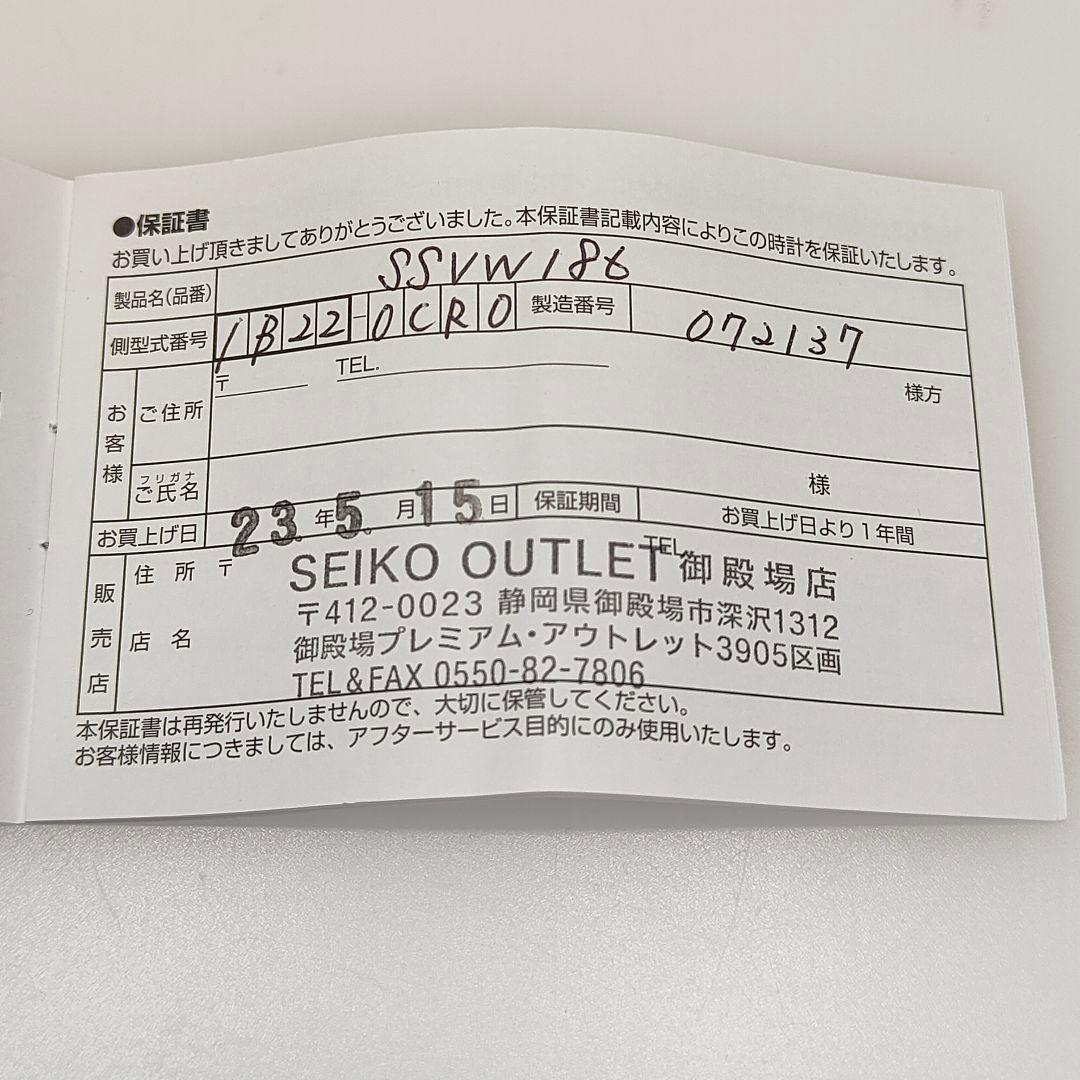 ●保証書
お買い上げ頂きましてありがとうございました。本保証書記載内容によりこの時計を保証いたします。
製品名(品番) SSVW186
側型式番号 1B22-0CR0 製造番号 072137
お客様 ご住所 〒 TEL. 様方
フリガナ
ご氏名 様
お買上げ日 23.年5.月15日 保証期間 お買上げ日より1年間
販売店 住所 〒 TEL.
店名
SEIKO OUTLET 御殿場店
〒412-0023 静岡県御殿場市深沢1312
御殿場プレミアム・アウトレット3905区画
TEL&FAX 0550-82-7806
本保証書は再発行いたしませんので、大切に保管してください。
お客様情報につきましては、アフターサービス目的にのみ使用いたします。